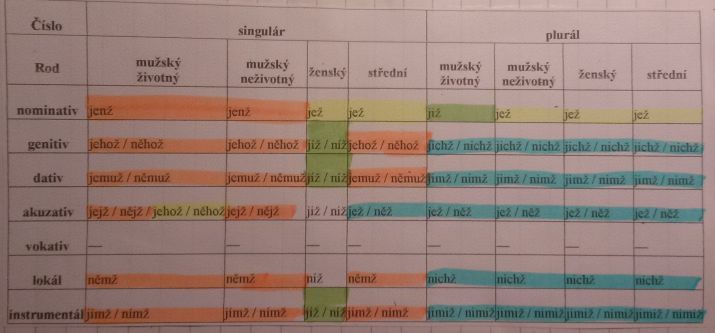 Číslo singulár plurál
Rod mužský životný mužský neživotný ženský střední mužský životný mužský neživotný ženský střední
nominativ jenž jenž jež jež již jež jež jež
genitiv jehož / něhož jehož / něhož jíž / níž jehož / něhož jichž / nichž jichž / nichž jichž / nichž jichž / nichž
dativ jemuž / němuž jemuž / němuž jíž / níž jemuž / němuž jimž / nimž jimž / nimž jimž / nimž jimž / nimž
akuzativ jejž / nějž / jehož / něhož jejž / nějž již / niž jež / něž jež / něž jež / něž jež / něž jež / něž
vokativ — — — — — — — —
lokál němž němž níž němž nichž nichž nichž nichž
instrumentál jímž / nímž jímž / nímž jíž / níž jímž / nímž jimiž / nimiž jimiž / nimiž jimiž / nimiž jimiž / nimiž